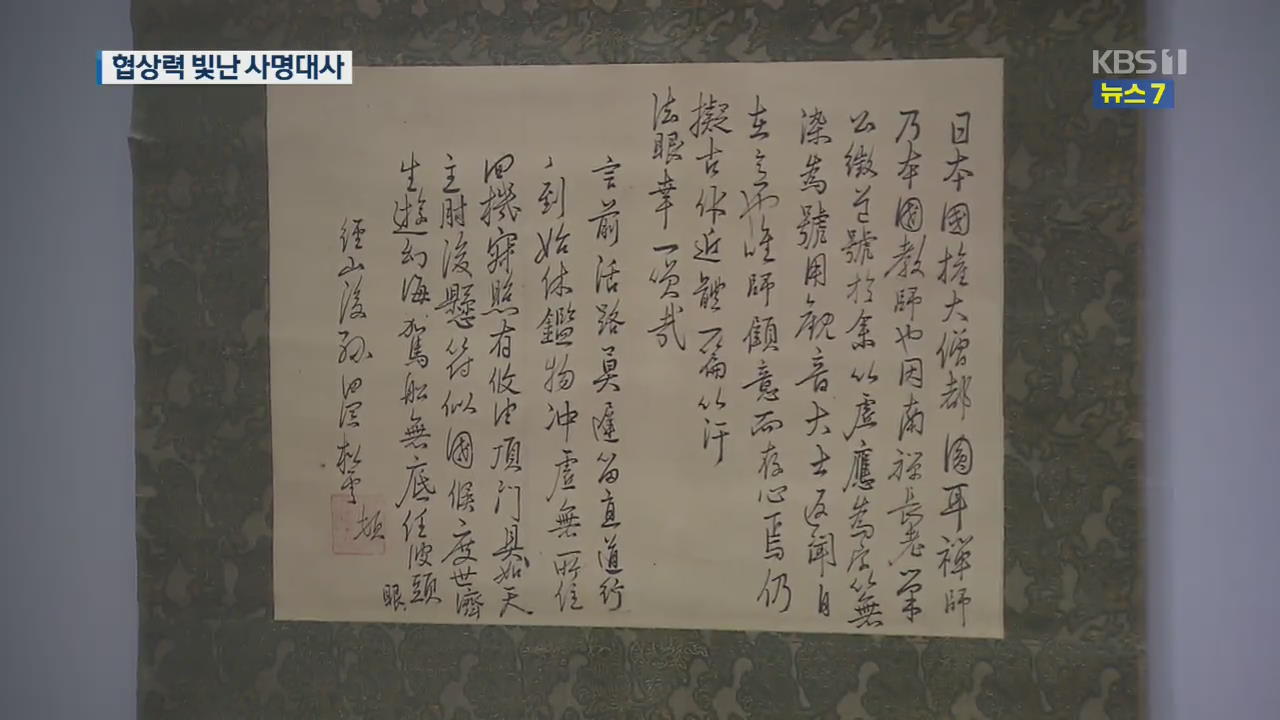 협상력 빛난 사명대사
KBS1
뉴스7
日本國擔大僧都圓耳禪師
乃本國教師也因南禪長老
公徵道號於余以虛應為字無
染為號用觀音大士返聞自
唯師顧意而存心焉仍
擬古作近體一篇以汗
法眼幸一笑哉
言前活路莫遲留直道行
到始休鑑物冲虛無所住
機寂照有攸項門具如天
主肘後懸符似國侯度世濟
生遊幻海駕船無底任波頭
眼
徑山後孫松雲